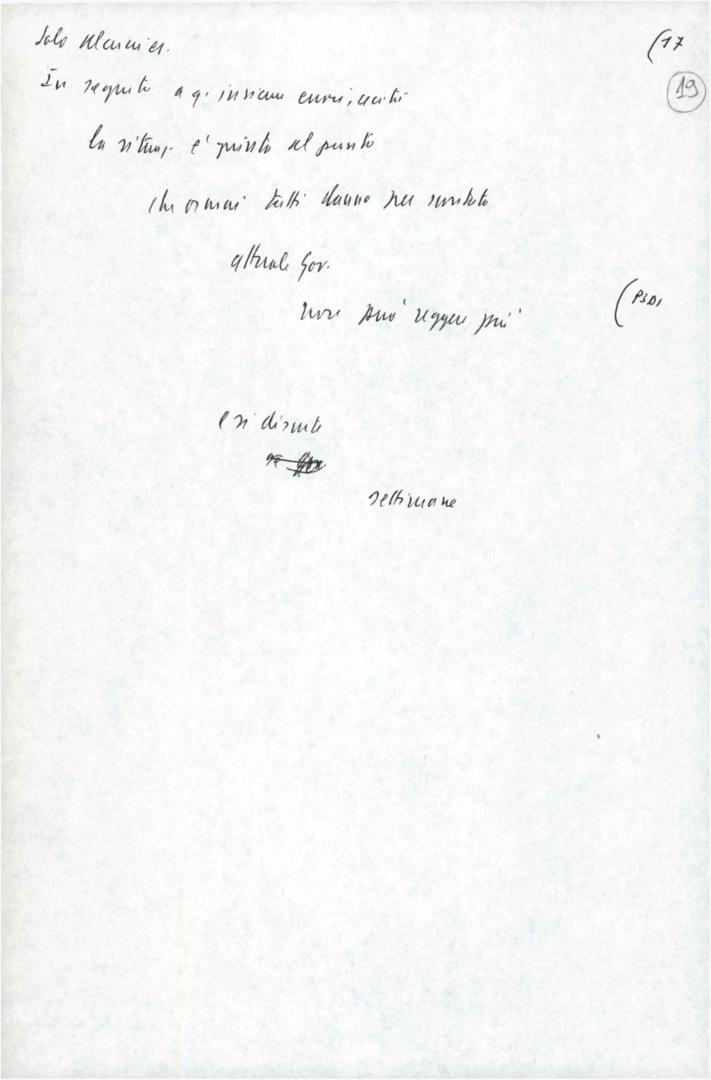 Solo alcuni es.
(17
19
In seguito a q. insieme
la situaz. è giunta al punto
che ormai tutti danno per scontato
attuale Gov.
non può reggere più
(PSDI
e si discute
se Gov.
settimane